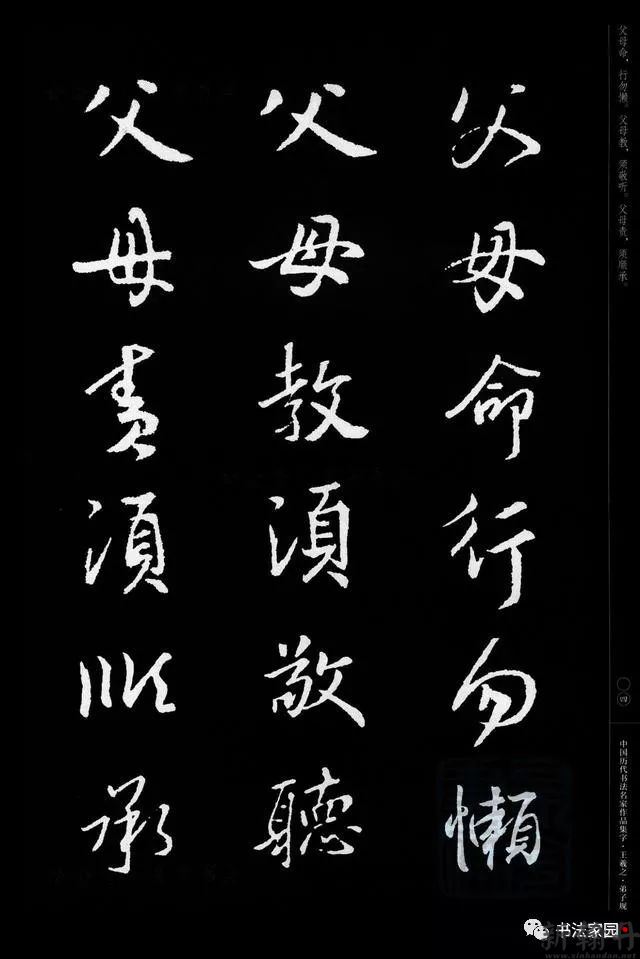 父母命行勿懶
父母教須敬聽
父母責須順承
父母命，行勿懒。父母教，须敬听。父母责，须顺承。
〇四
中国历代书法名家作品集字·王羲之·弟子规
书法家园
新翰丹
www.xinhandan.net